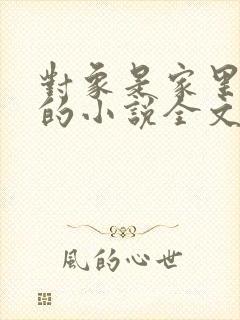 對象是家里
的小說全文
風的心世